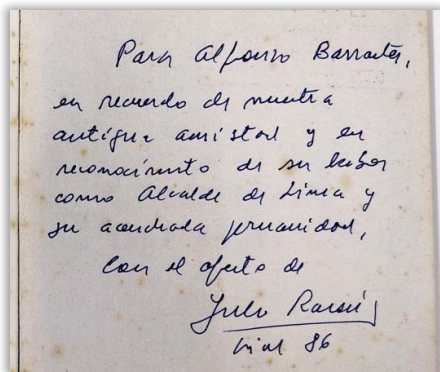 Para Alfonso Barrantes,
en recuerdo de nuestra
antigua amistad y en
reconocimiento de su labor
como Alcalde de Lima y
su acendrada peruanidad,
con el afecto de
Julio Ramón
86